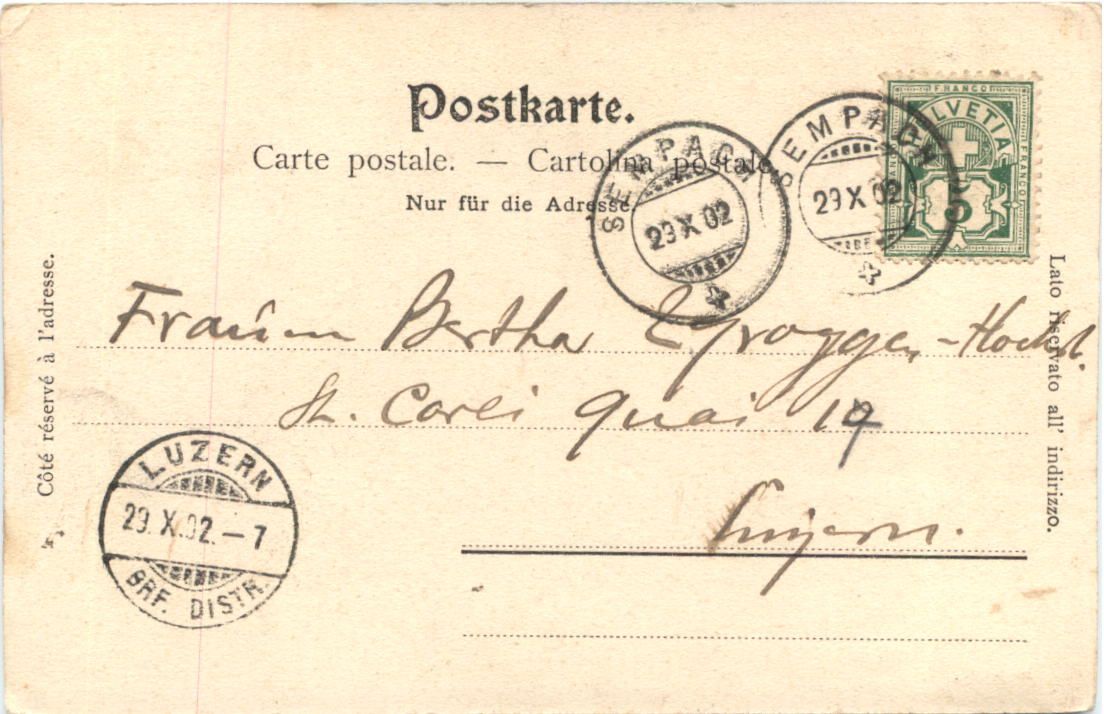 Postkarte.
Carte postale. — Cartolina postale.
Nur für die Adresse.
FRANCO
HELVETIA
FRANCO
FRANCO
5
SEMPACH
29 X 02
SEMPACH
29 X 02
Côté réservé à l'adresse.
Lato riservato all' indirizzo.
Bertha
St. Carli Quai
Luzern.
LUZERN
29. X. 02. – 7
BRF. DISTR.